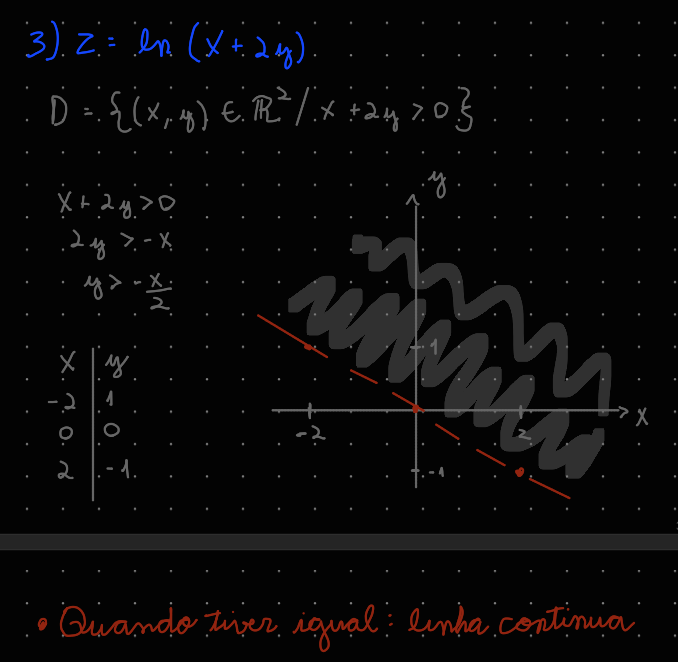 3) Z = ln (x + 2y)
D = {(x, y) ∈ ℝ² / x + 2y > 0}
x + 2y > 0
2y > -x
y > -x/2
x | y
-2 | 1
0 | 0
2 | -1
y
1
-2
2
x
-1
• Quando tiver igual: linha continua